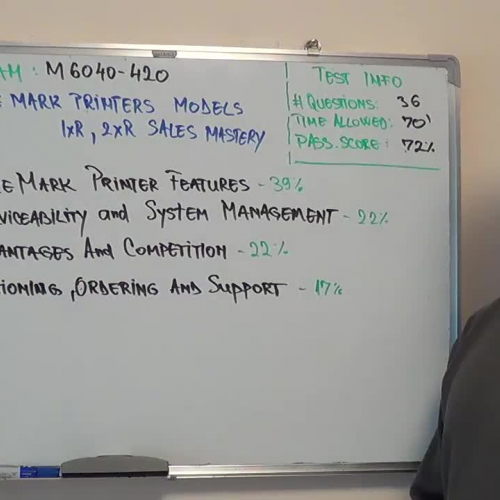 AM: M6040-420
E MARK PRINTERS MODELS
1xR, 2xR SALES MASTERY
TEST INFO
# QUESTIONS: 36
TIME ALLOWED: 70'
PASS. SCORE: 72%
E MARK PRINTER FEATURES - 39%
VICEABILITY and SYSTEM MANAGEMENT - 22%
ANTAGES AND COMPETITION - 22%
TIONING, ORDERING AND SUPPORT - 17%